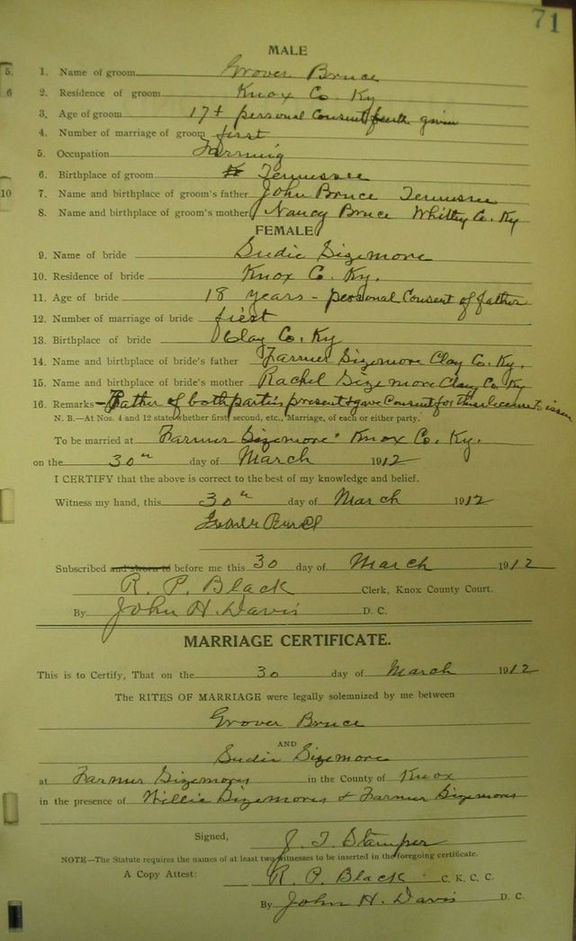 71
MALE
5. 1. Name of groom Grover Bruce
6 2. Residence of groom Knox Co. Ky
3. Age of groom 17+ personal Consent given
4. Number of marriage of groom first
5. Occupation Farming
6. Birthplace of groom Tennessee
10 7. Name and birthplace of groom's father John Bruce Tennessee
8. Name and birthplace of groom's mother Nancy Bruce Whitley Co. Ky
FEMALE
9. Name of bride Sudie Sizemore
10. Residence of bride Knox Co. Ky.
11. Age of bride 18 years - personal Consent of father
12. Number of marriage of bride first
13. Birthplace of bride Clay Co. Ky
14. Name and birthplace of bride's father Farmer Sizemore Clay Co. Ky.
15. Name and birthplace of bride's mother Rachel Sizemore Clay Co. Ky
16. Remarks - Father of both parties present & gave Consent for this license to issue
N. B.—At Nos. 4 and 12 state whether first, second, etc., Marriage, of each or either party.
To be married at Farmer Sizemore's Knox Co. Ky.
on the 30th day of March 1912
I CERTIFY that the above is correct to the best of my knowledge and belief.
Witness my hand, this 30th day of March 1912
Subscribed and sworn to before me this 30 day of March 1912
R. P. Black Clerk, Knox County Court.
By John H. Davis D. C.
MARRIAGE CERTIFICATE.
This is to Certify, That on the 30 day of March 1912
The RITES OF MARRIAGE were legally solemnized by me between
Grover Bruce
AND
Sudie Sizemore
at Farmer Sizemores in the County of Knox
in the presence of Willie Sizemores & Farmer Sizemores
Signed, J. T. Stamper
NOTE—The Statute requires the names of at least two witnesses to be inserted in the foregoing certificate.
A Copy Attest: R. P. Black C. K. C. C.
By John H. Davis D. C.